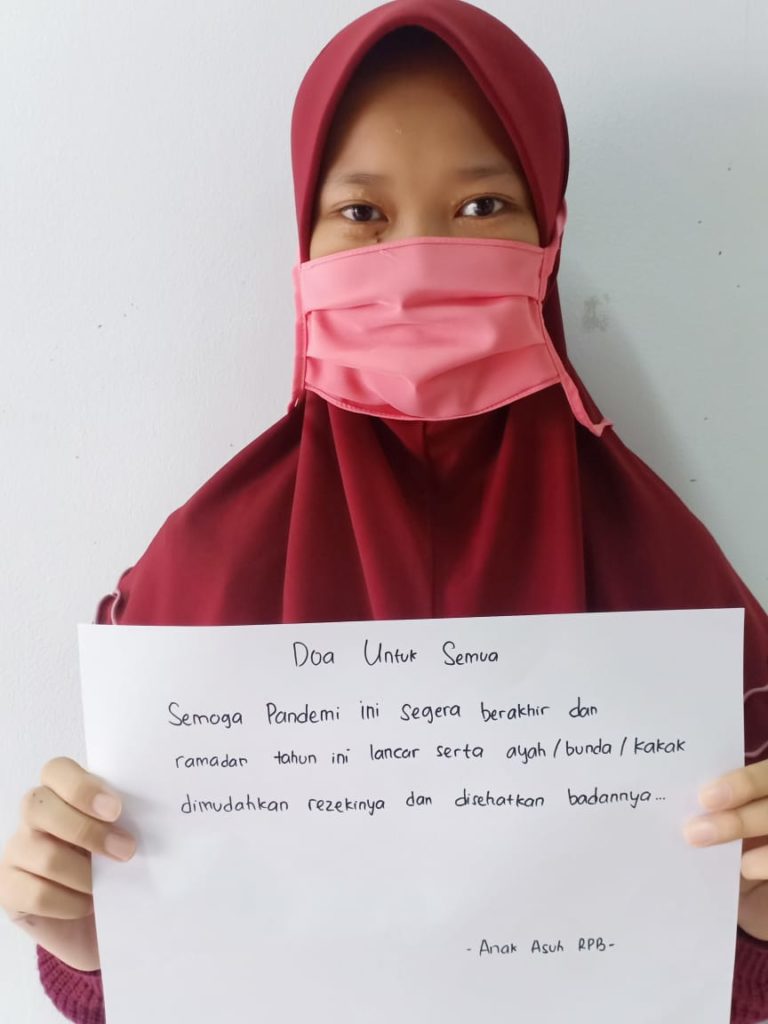 Doa Untuk Semua
Semoga Pandemi ini segera berakhir dan
ramadan tahun ini lancar serta ayah/bunda/kakak
dimudahkan rezekinya dan disehatkan badannya...
- Anak Asuh RPB -